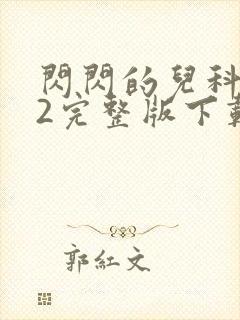 閃閃的兒科
2完整版下載
郭紅文